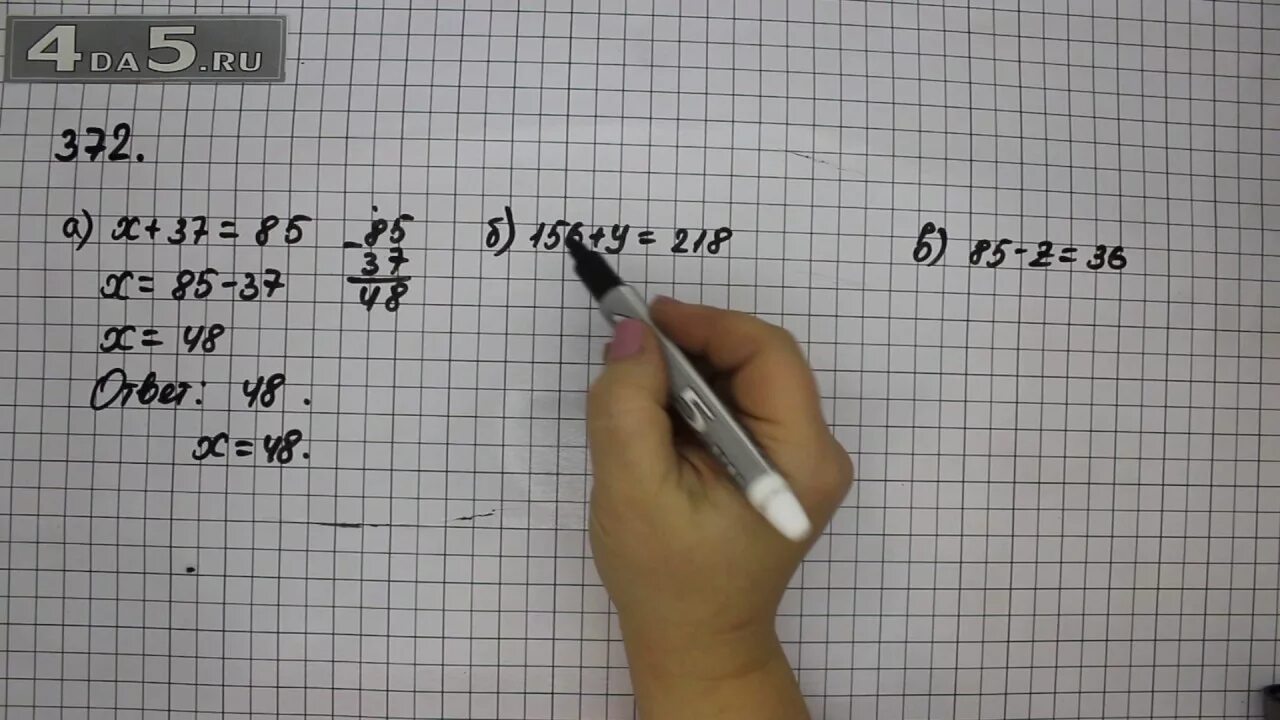 4DA5.RU
372.
а) x + 37 = 85
x = 85 - 37
x = 48
Ответ: 48 .
x = 48.
- 85
37
48
б) 156 + y = 218
в) 85 - z = 36